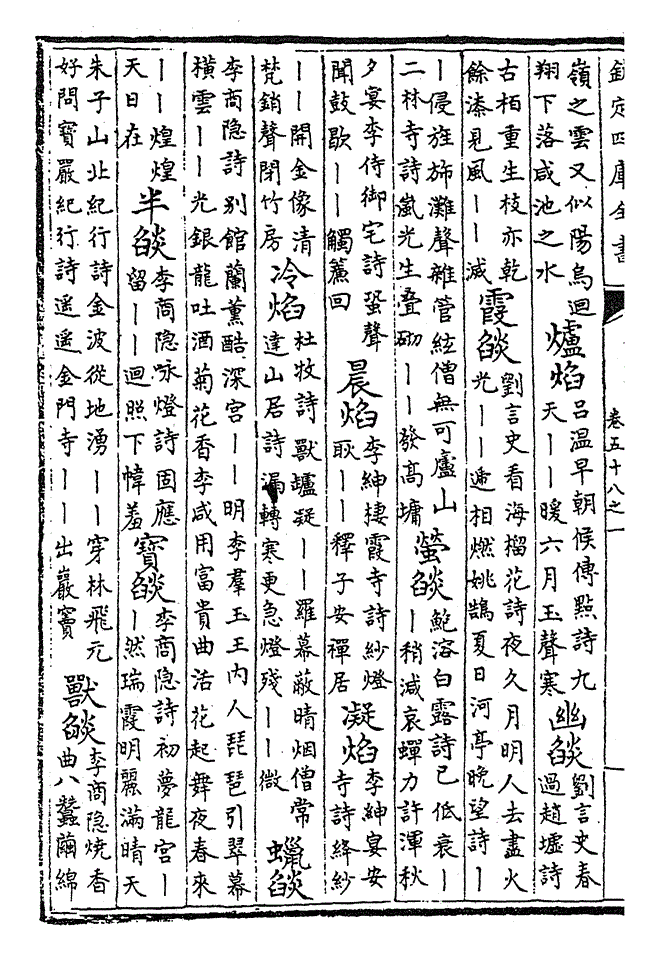 欽定四庫全書
卷五十八之一
嶺之雲又似陽烏迴
翔下落咸池之水
爐焰
呂温早朝候傳㸃詩九
天——暖六月玉聲寒
幽燄
劉言史春
過趙墟詩
古栢重生枝亦乾
餘漆見風——滅
霞燄
劉言史看海榴花詩夜久月明人去盡火
光——遞相燃姚鵠夏日河亭晚望詩—
—侵旌斾灘聲雜管絃僧無可廬山
二林寺詩嵐光生叠砌——發髙墉
螢燄
鮑溶白露詩已低衰—
—稍減哀蟬力許渾秋
夕宴李侍御宅詩蛩聲
聞鼓歇——觸簾回
晨焰
李紳棲霞寺詩紗燈
耿——釋子安禪居
凝焰
李紳宴安
寺詩絳紗
——開金像清
梵銷聲閉竹房
冷焰
杜牧詩獸罏凝——羅幕蔽晴烟僧常
達山居詩漏轉寒更急燈殘——微
蠟燄
李商隐詩别館蘭薰酷深宫——明李羣玉王内人琵琶引翠幕
横雲——光銀龍吐酒菊花香李咸用富貴曲活花起舞夜春來
——煌煌
天日在
半燄
李商隐咏燈詩固應
留——迴照下幃羞
寶燄
李商隐詩初夢龍宫—
—然瑞霞明麗滿晴天
朱子山北紀行詩金波從地湧——穿林飛元
好問寶巖紀行詩遥遥金門寺——出巖竇
獸燄
李商隐燒香
曲八蠶繭綿